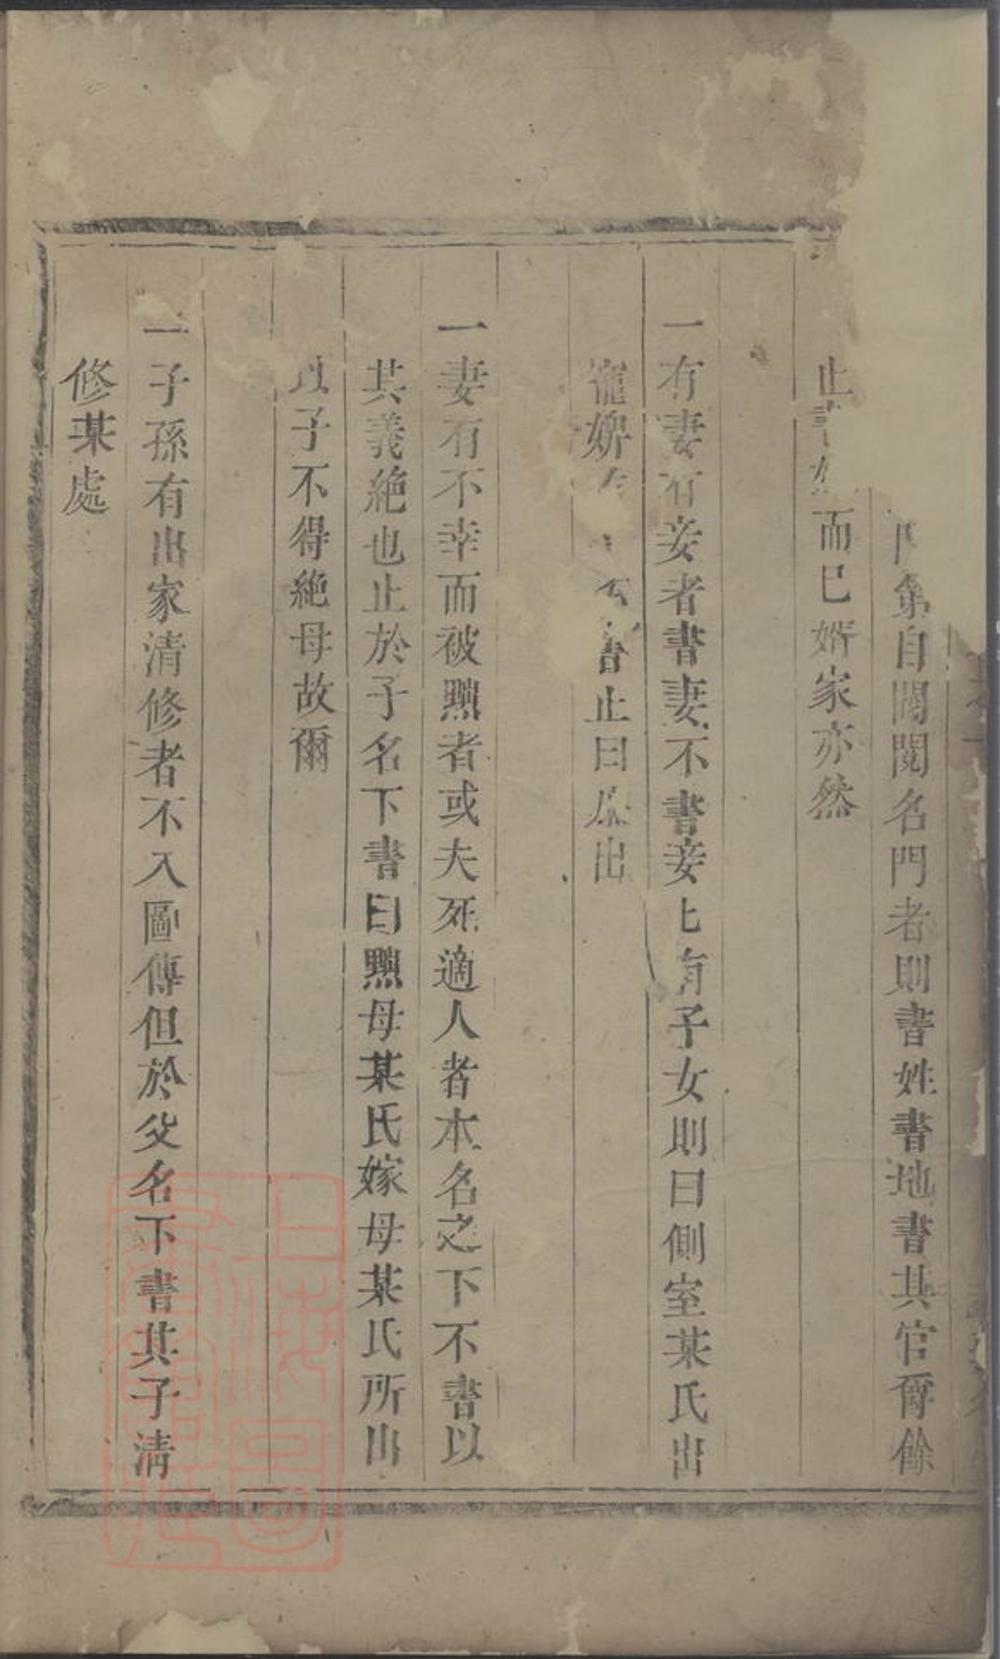 第自閥閱名門者則書姓書地書其官爵餘
止書姓而已婿家亦然
一有妻有妾者書妻不書妾止有子女則曰側室某氏出
寵婢書止曰庶出
一妻有不幸而被黜者或夫死適人者本名之下不書以
其義絕也止於子名下書曰黜母某氏嫁母某氏所出
以子不得絕母故爾
一子孫有出家清修者不入圖傳但於父名下書其子清
修某處